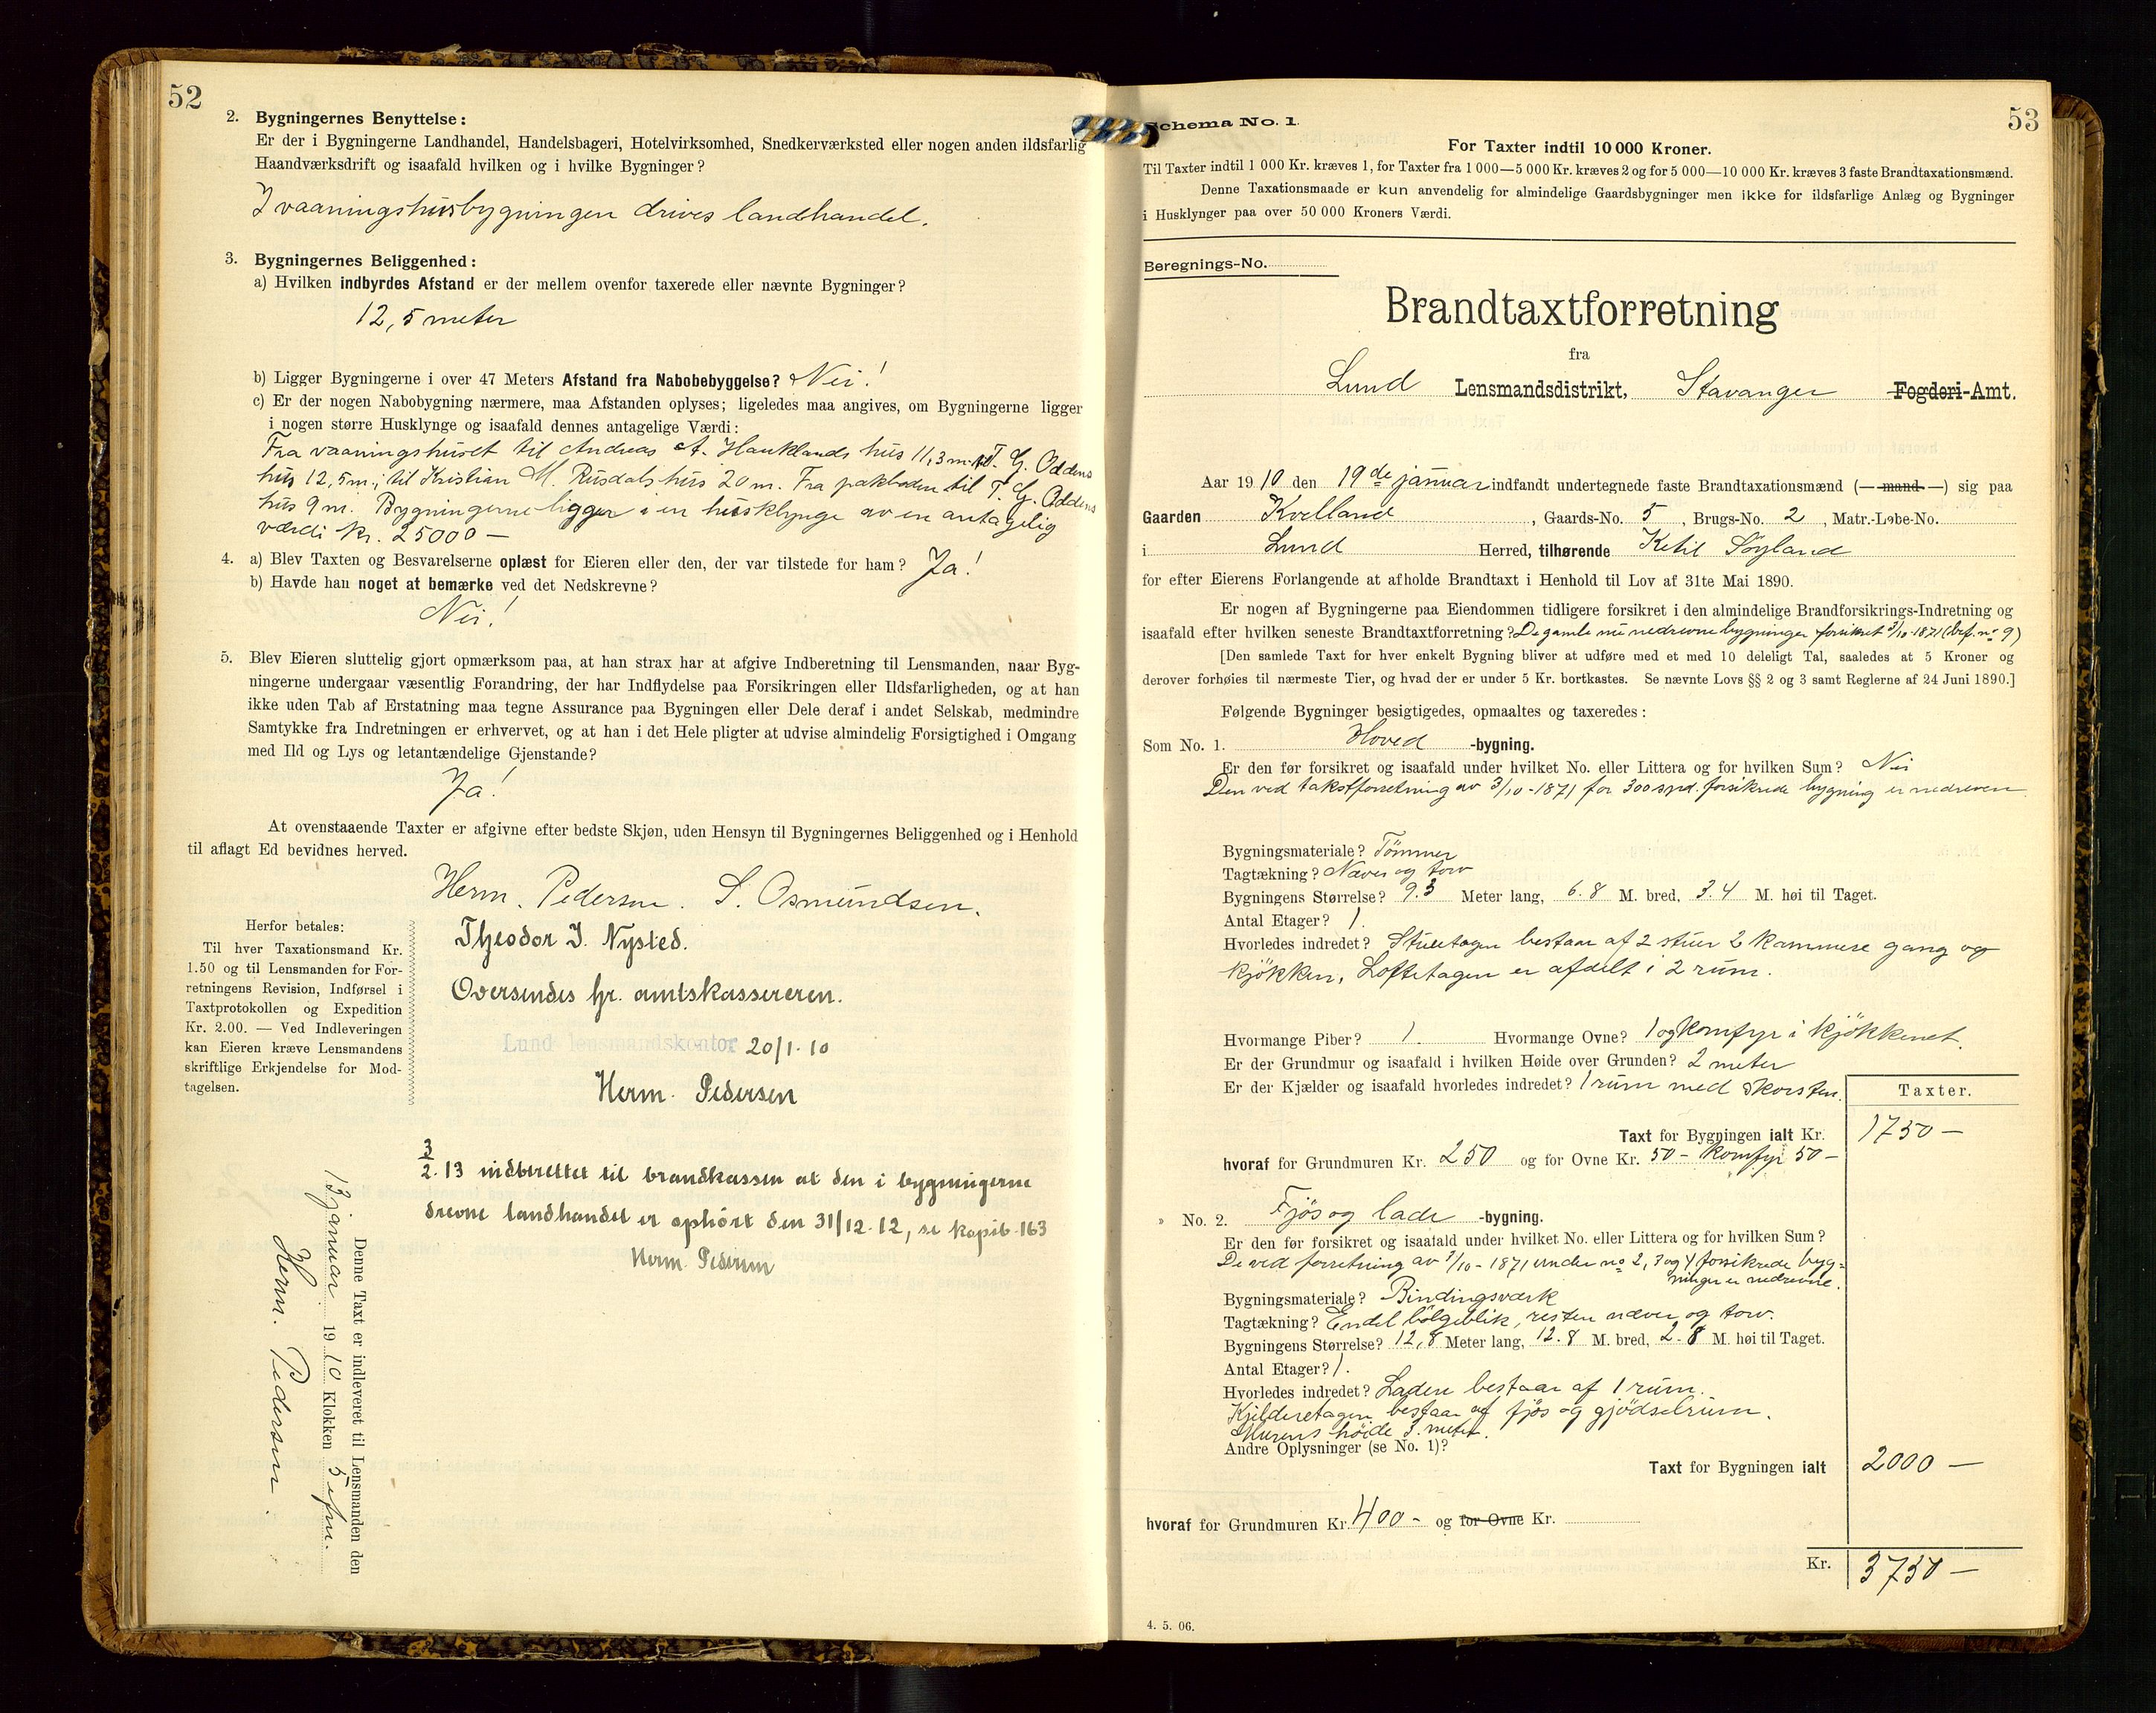 52
2. Bygningernes Benyttelse:
Er der i Bygningerne Landhandel, Handelsbageri, Hotelvirksomhed, Snedkerværksted eller nogen anden ildsfarlig
Haandværksdrift og isaafald hvilken og i hvilke Bygninger?
I vaaningshusbygningen drives landhandel.
3. Bygningernes Beliggenhed:
a) Hvilken indbyrdes Afstand er der mellem ovenfor taxerede eller nævnte Bygninger?
12,5 meter
b) Ligger Bygningerne i over 47 Meters Afstand fra Nabobebyggelse? Nei!
c) Er der nogen Nabobygning nærmere, maa Afstanden oplyses; ligeledes maa angives, om Bygningerne ligger
i nogen større Husklynge og isaafald dennes antagelige Værdi:
Fra vaaningshuset til Andreas A. Hauklands hus 11,3 m. til T. G. Oddens
hus 12,5 m.; til Kristian M. Rusdals hus 20 m. Fra pakboden til T. G. Oddens
hus 9 m. Bygningerne ligger i en husklynge av en antagelig
værdi kr. 25000 —
4. a) Blev Taxten og Besvarelserne oplæst for Eieren eller den, der var tilstede for ham? Ja!
b) Havde han noget at bemærke ved det Nedskrevne?
Nei!
5. Blev Eieren sluttelig gjort opmærksom paa, at han strax har at afgive Indberetning til Lensmanden, naar Byg-
ningerne undergaar væsentlig Forandring, der har Indflydelse paa Forsikringen eller Ildsfarligheden, og at han
ikke uden Tab af Erstatning maa tegne Assurance paa Bygningen eller Dele deraf i andet Selskab, medmindre
Samtykke fra Indretningen er erhvervet, og at han i det Hele pligter at udvise almindelig Forsigtighed i Omgang
med Ild og Lys og letantændelige Gjenstande?
Ja!
At ovenstaaende Taxter er afgivne efter bedste Skjøn, uden Hensyn til Bygningernes Beliggenhed og i Henhold
til aflagt Ed bevidnes herved.
Herm. Pedersen. S. Osmundsen.
Theodor I. Nysted.
Oversendes hr. amtskassereren.
Lund lensmandskontor 20/1-10
Herm. Pedersen
Herfor betales:
Til hver Taxationsmand Kr.
1.50 og til Lensmanden for For-
retningens Revision, Indførsel i
Taxtprotokollen og Expedition
Kr. 2.00. — Ved Indleveringen
kan Eieren kræve Lensmandens
skriftlige Erkjendelse for Mod-
tagelsen.
3/2-13 indberettet til brandkassen at den i bygningerne
drevne landhandel er ophört den 31/12-12, se kopib. 163
Herm. Pedersen
Denne Taxt er indleveret til Lensmanden den
13 januar 1910 Klokken 5 efm.
Herm. Pedersen.
53
Schema No. 1.
For Taxter indtil 10 000 Kroner.
Til Taxter indtil 1 000 Kr. kræves 1, for Taxter fra 1 000—5 000 Kr. kræves 2 og for 5 000—10 000 Kr. kræves 3 faste Brandtaxationsmænd.
Denne Taxationsmaade er kun anvendelig for almindelige Gaardsbygninger men ikke for ildsfarlige Anlæg og Bygninger
i Husklynger paa over 50 000 Kroners Værdi.
Beregnings-No.
Brandtaxtforretning
fra
Lund Lensmandsdistrikt, Stavanger Fogderi-Amt.
Aar 1910 den 19de januar indfandt undertegnede faste Brandtaxationsmænd (— mand —) sig paa
Gaarden Kvelland, Gaards-No. 5, Brugs-No. 2, Matr.-Løbe-No.
i Lund Herred, tilhørende Ketil Søyland
for efter Eierens Forlangende at afholde Brandtaxt i Henhold til Lov af 31te Mai 1890.
Er nogen af Bygningerne paa Eiendommen tidligere forsikret i den almindelige Brandforsikrings-Indretning og
isaafald efter hvilken seneste Brandtaxtforretning? De gamle nu nedrevne bygninger forsikret 3/10-1871 (bref. no 9)
[Den samlede Taxt for hver enkelt Bygning bliver at udføre med et med 10 deleligt Tal, saaledes at 5 Kroner og
derover forhøies til nærmeste Tier, og hvad der er under 5 Kr. bortkastes. Se nævnte Lovs §§ 2 og 3 samt Reglerne af 24 Juni 1890.]
Følgende Bygninger besigtigedes, opmaaltes og taxeredes:
Som No. 1. Hoved -bygning.
Er den før forsikret og isaafald under hvilket No. eller Littera og for hvilken Sum? Nei
Den ved takstforretning av 3/10-1871 for 300 spd. forsikrede bygning er nedreven
Bygningsmateriale? Tömmer
Tagtækning? Næver og torv
Bygningens Størrelse? 9.3 Meter lang, 6.8 M. bred, 3.4 M. høi til Taget.
Antal Etager? 1.
Hvorledes indredet? Stueetagen bestaar af 2 stuer 2 kammere gang og
kjökken, Loftetagen er afdelt i 2 rum.
Hvormange Piber? 1 Hvormange Ovne? 1 og komfyr i kjökkenet.
Er der Grundmur og isaafald i hvilken Høide over Grunden? 2 meter
Er der Kjælder og isaafald hvorledes indredet? 1 rum med skorsten.
Taxter.
Taxt for Bygningen ialt Kr. 1750 —
hvoraf for Grundmuren Kr. 250 og for Ovne Kr. 50 — komfyr 50 —
» No. 2. Fjös og lade -bygning.
Er den før forsikret og isaafald under hvilket No. eller Littera og for hvilken Sum?
De ved forretning av 3/10-1871 under no 2, 3 og 4 forsikrede byg-
ninger er nedrevne.
Bygningsmateriale? Bindingsværk
Tagtækning? Endel bölgeblik, resten næver og torv.
Bygningens Størrelse? 12,8 Meter lang, 12.8 M. bred, 2.8 M. høi til Taget.
Antal Etager? 1.
Hvorledes indredet? Laden bestaar af 1 rum.
Kjelderetagen bestaar af fjös og gjödselrum.
Murens höide 3. meter.
Andre Oplysninger (se No. 1)?
Taxt for Bygningen ialt 2000 —
hvoraf for Grundmuren Kr. 400 - og for Ovne Kr.
Kr. 3750 —
4. 5. 06.